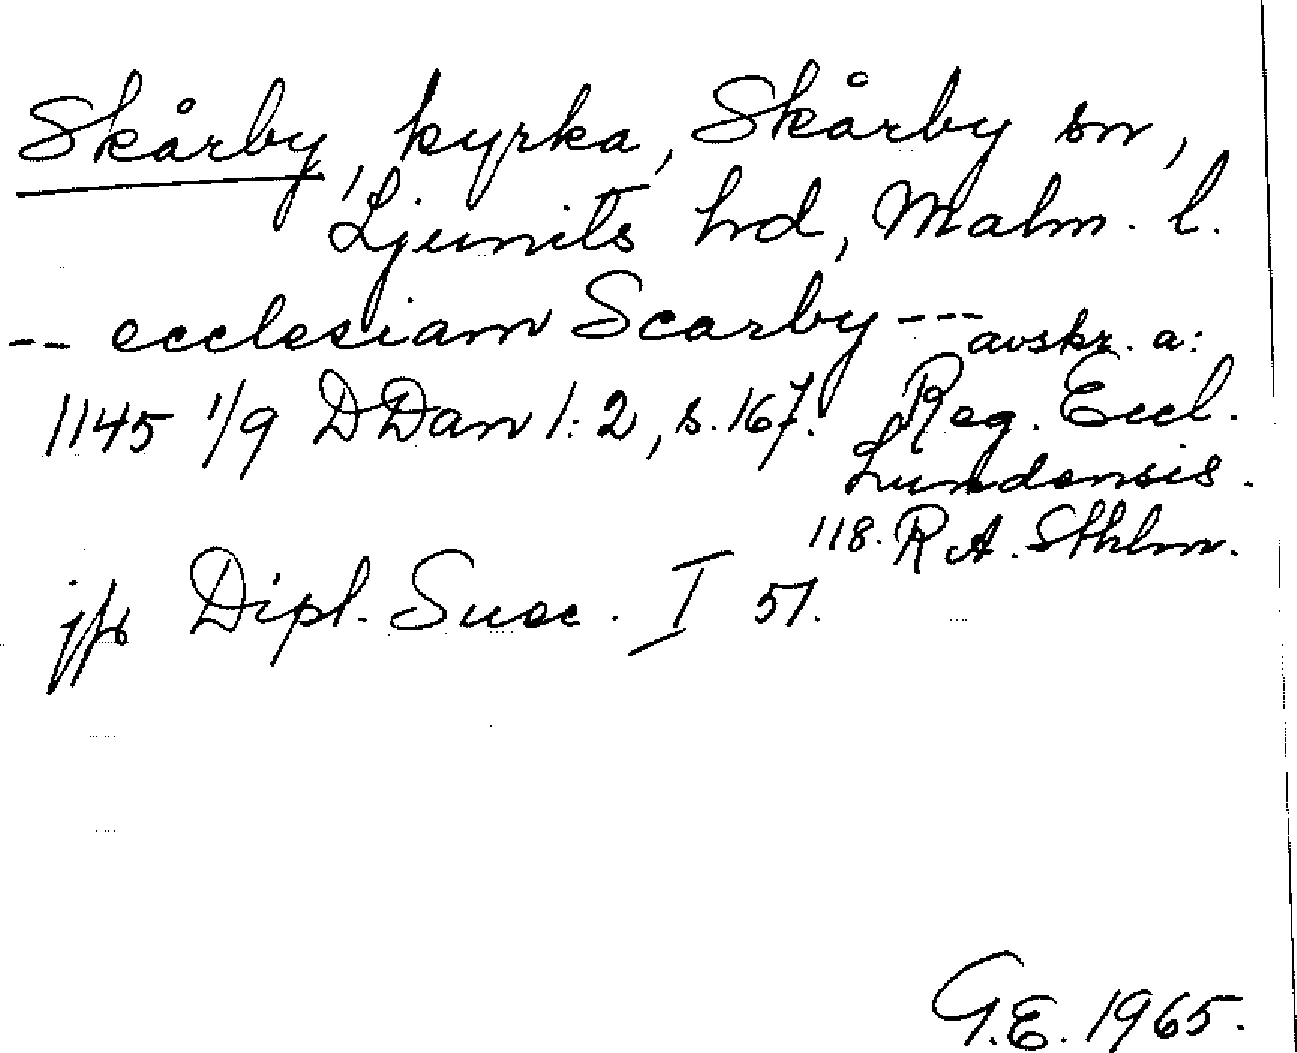 Skårby, kyrka, Skårby sn,
Ljunits hd, Malm. l.
-- ecclesiam Scarby ---
avskr. a:
1145 1/9 DDan 1:2, s. 167.
Reg. Eccl.
Lundensis.
118. RA. Sthlm.
jfr Dipl. Suec. I 51.
G.E. 1965.